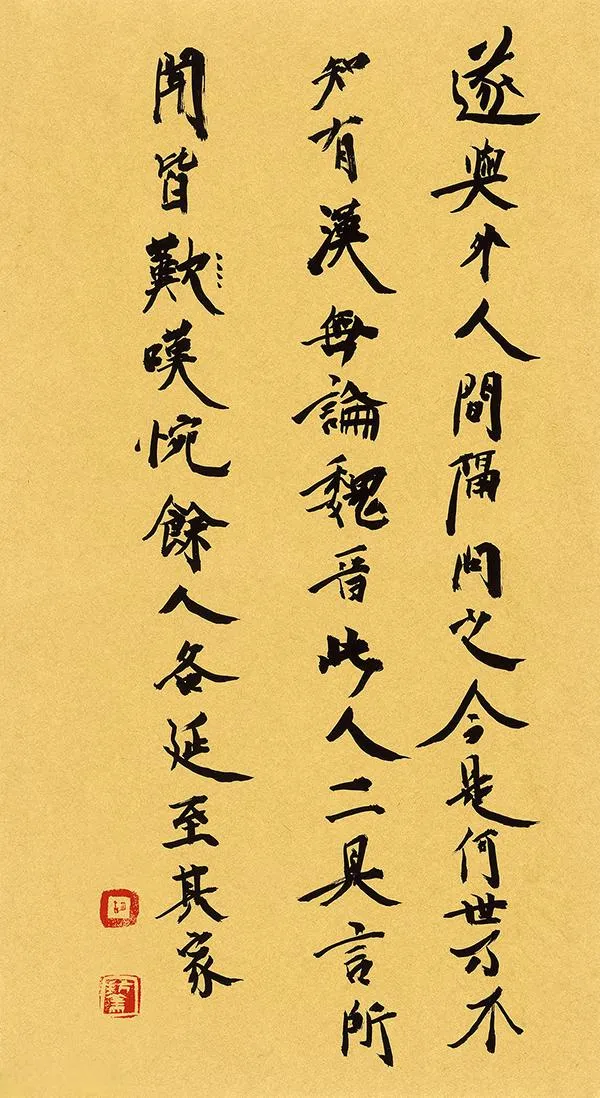 遂與外人間隔問之今是何世乃不
知有漢無論魏晉此人二具言所
聞皆歎嘆惋餘人各延至其家